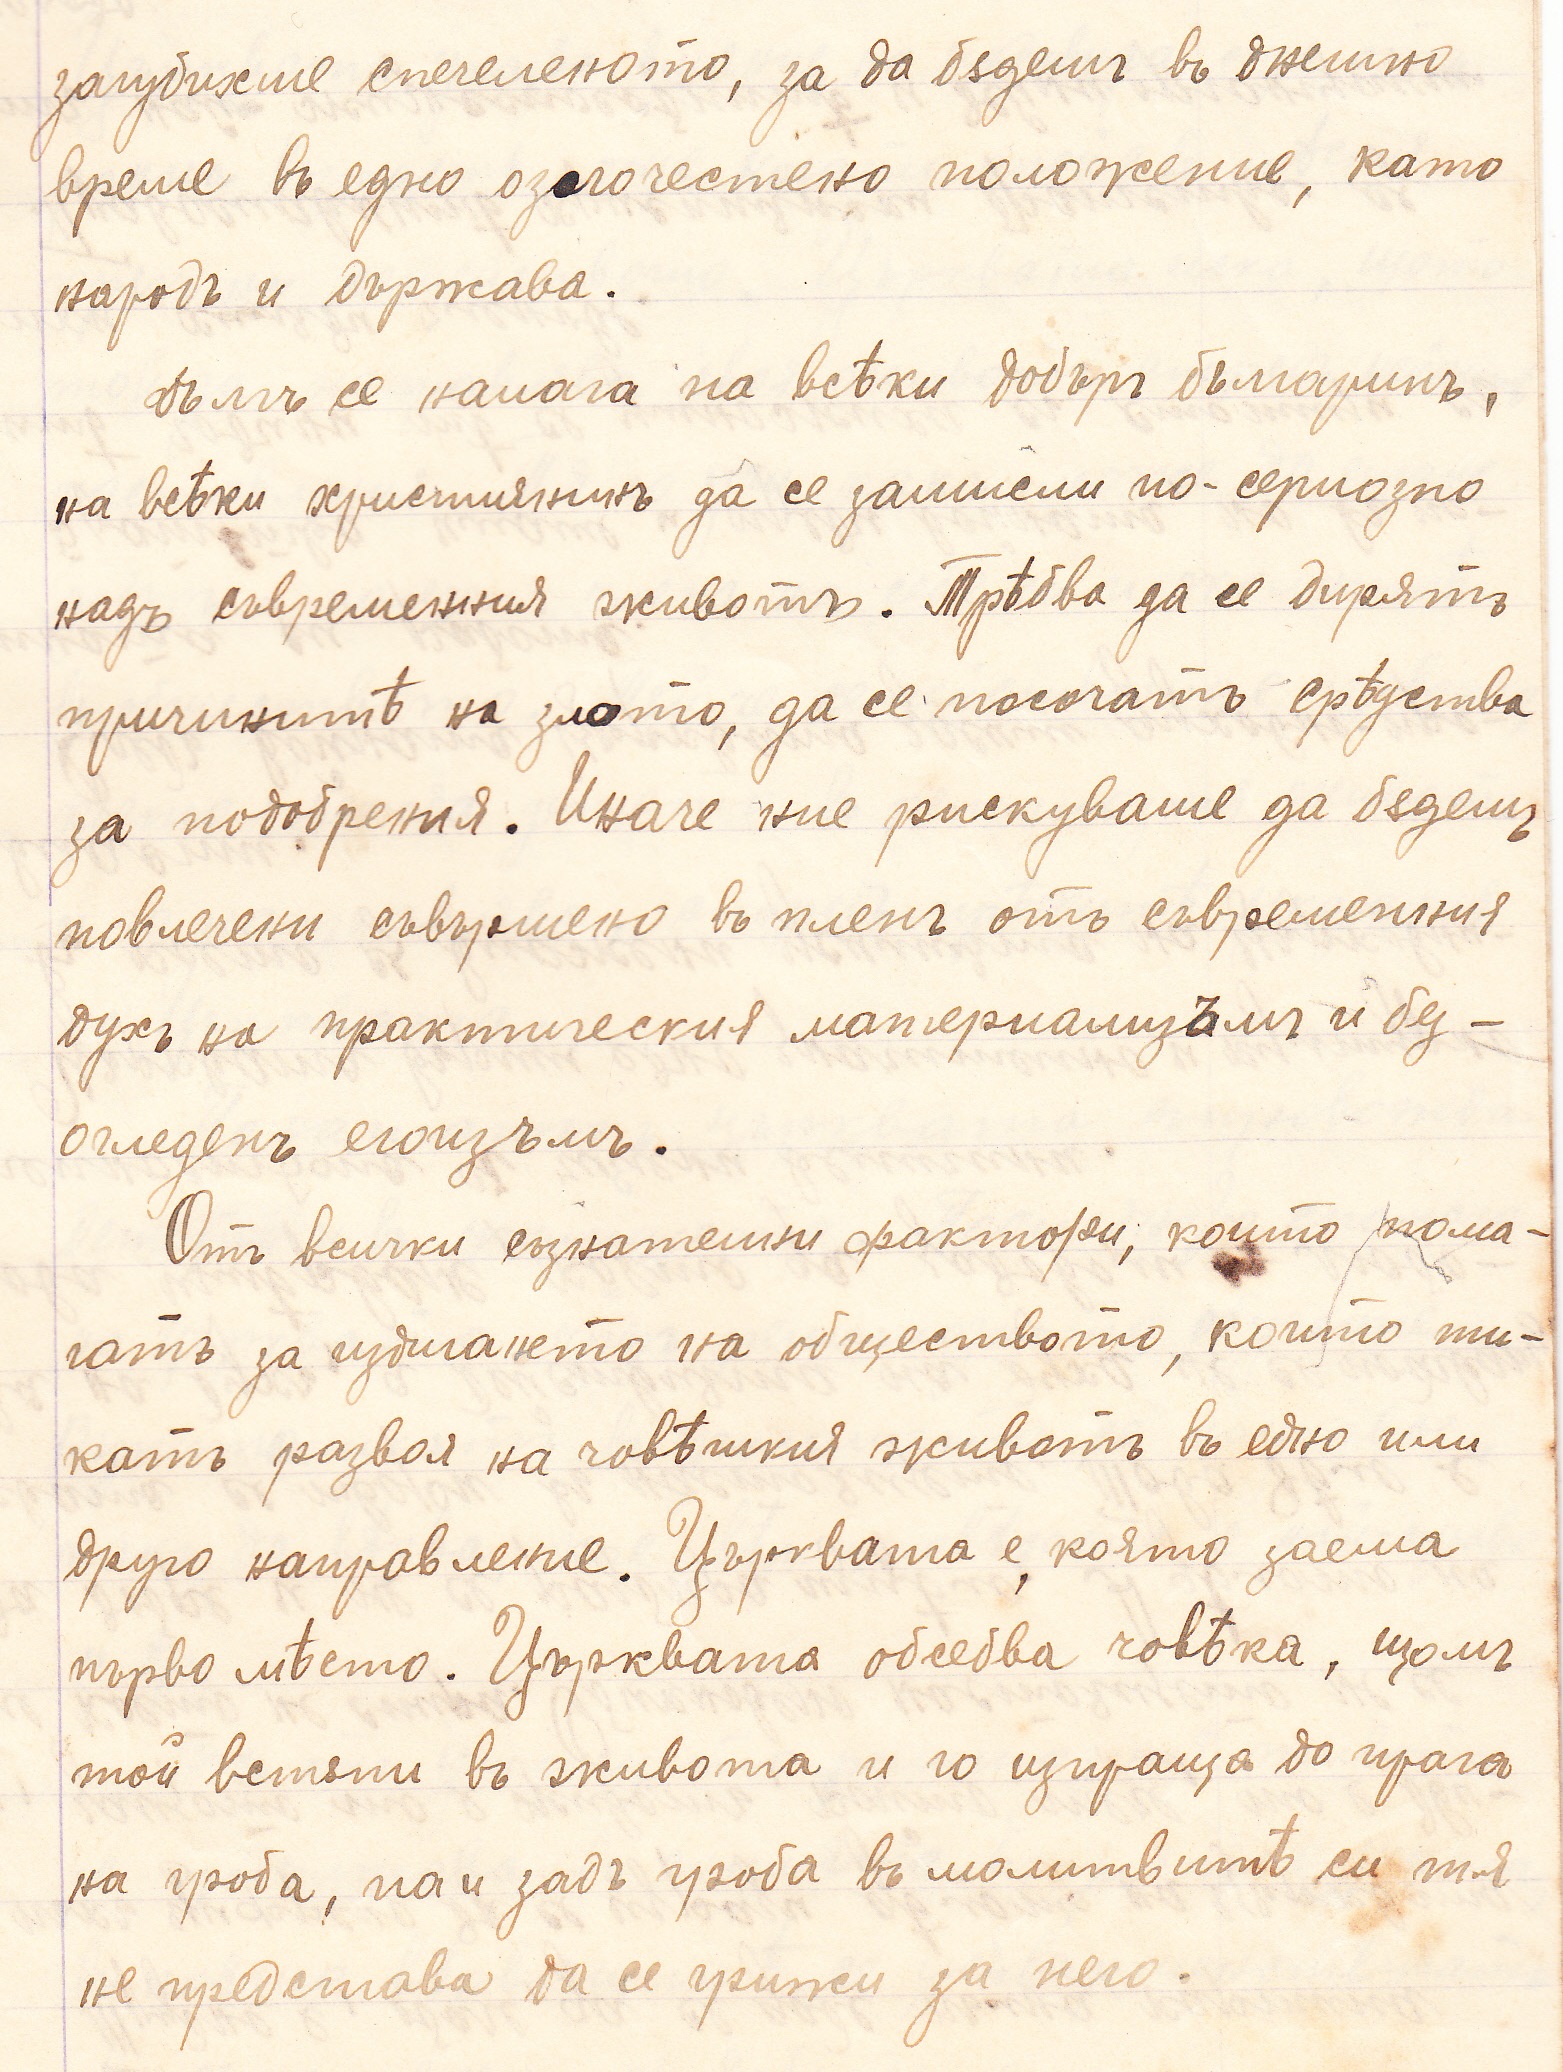 загубихме спечеленото, за да бѫдемъ въ днешно
време въ едно озлочестено положение, като
народъ и държава.
Дългъ се налага на всѣки добъръ българинъ,
на всѣки християнинъ да се замисли по-сериозно
надъ съвременния животъ. Трѣбва да се дирятъ
причинитѣ на злото, да се посочатъ срѣдства
за подобрения. Иначе ние рискуваме да бѫдемъ
повлечени съвършено въ пленъ отъ съвременния
духъ на практическия материализъмъ и без-
огледенъ егоизъмъ.
Отъ всички съзнателни фактори, които пома-
гатъ за издигането на обществото, които ти-
катъ развоя на човѣшкия животъ въ едно или
друго направление. Църквата е, която заема
първо мѣсто. Църквата обсебва човѣка, щомъ
той встѫпи въ живота и го изпраща до прага
на гроба, па и задъ гроба въ молитвитѣ си тя
не представа да се грижи за него.